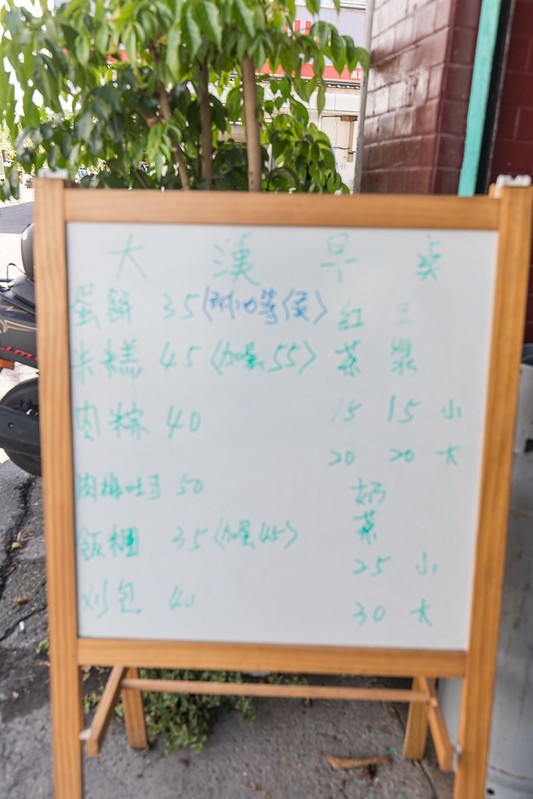 大漢早桌
蛋餅 35(需等候)
米糕 45(加蛋55)
肉粽 40
肉排吐司 50
飯糰 35(加蛋45)
刈包 40
紅茶
15 小
20 大
三綠
15 小
20 大
奶茶
25 小
30 大